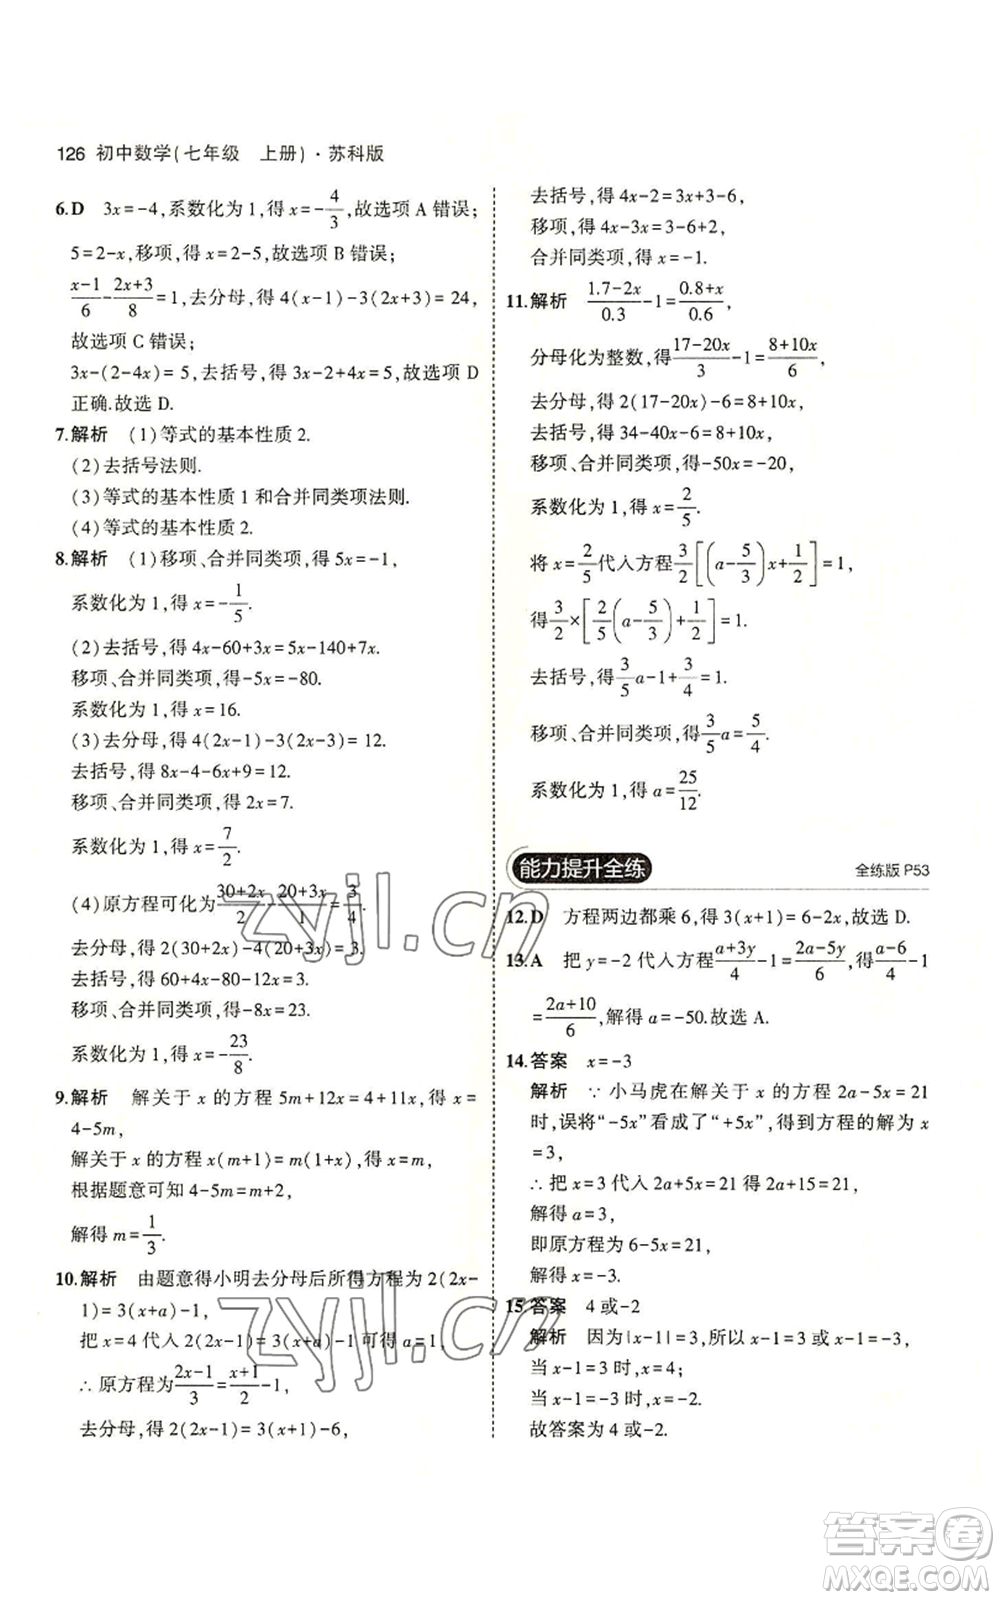 126 初中数学(七年级 上册)·苏科版
6.D 3x=-4,系数化为1,得x=-4/3,故选项A错误;
5=2-x,移项,得x=2-5,故选项B错误;
(x-1)/6-(2x+3)/8=1,去分母,得4(x-1)-3(2x+3)=24,
故选项C错误;
3x-(2-4x)=5,去括号,得3x-2+4x=5,故选项D
正确.故选D.
7.解析 (1)等式的基本性质2.
(2)去括号法则.
(3)等式的基本性质1和合并同类项法则.
(4)等式的基本性质2.
8.解析 (1)移项、合并同类项,得5x=-1,
系数化为1,得x=-1/5.
(2)去括号,得4x-60+3x=5x-140+7x.
移项、合并同类项,得-5x=-80.
系数化为1,得x=16.
(3)去分母,得4(2x-1)-3(2x-3)=12.
去括号,得8x-4-6x+9=12.
移项、合并同类项,得2x=7.
系数化为1,得x=7/2.
(4)原方程可化为(30+2x)/2-(20+3x)/1=3/4.
去分母,得2(30+2x)-4(20+3x)=3.
去括号,得60+4x-80-12x=3.
移项、合并同类项,得-8x=23.
系数化为1,得x=-23/8.
9.解析 解关于x的方程5m+12x=4+11x,得x=
4-5m,
解关于x的方程x(m+1)=m(1+x),得x=m,
根据题意可知4-5m=m+2,
解得m=1/3.
10.解析 由题意得小明去分母后所得方程为2(2x-
1)=3(x+a)-1,
把x=4代入2(2x-1)=3(x+a)-1可得a=1,
∴原方程为(2x-1)/3=(x+1)/2-1,
去分母,得2(2x-1)=3(x+1)-6,
去括号,得4x-2=3x+3-6,
移项,得4x-3x=3-6+2,
合并同类项,得x=-1.
11.解析 (1.7-2x)/0.3-1=(0.8+x)/0.6,
分母化为整数,得(17-20x)/3-1=(8+10x)/6,
去分母,得2(17-20x)-6=8+10x,
去括号,得34-40x-6=8+10x,
移项、合并同类项,得-50x=-20,
系数化为1,得x=2/5.
将x=2/5代入方程3/2[(a-5/3)x+1/2]=1,
得3/2×[2/5(a-5/3)+1/2]=1.
去括号,得3/5a-1+3/4=1.
移项、合并同类项,得3/5a=5/4.
系数化为1,得a=25/12.
能力提升全练 全练版P53
12.D 方程两边都乘6,得3(x+1)=6-2x,故选D.
13.A 把y=-2代入方程(a+3y)/4-1=(2a-5y)/6,得(a-6)/4-1
=(2a+10)/6,解得a=-50.故选A.
14.答案 x=-3
解析 ∵小马虎在解关于x的方程2a-5x=21
时,误将“-5x”看成了“+5x”,得到方程的解为x
=3,
∴把x=3代入2a+5x=21得2a+15=21,
解得a=3,
即原方程为6-5x=21,
解得x=-3.
15.答案 4或-2
解析 因为|x-1|=3,所以x-1=3或x-1=-3,
当x-1=3时,x=4;
当x-1=-3时,x=-2.
故答案为4或-2.
zyjl.cn
zyjl.cn
答案卷
MXQE.COM